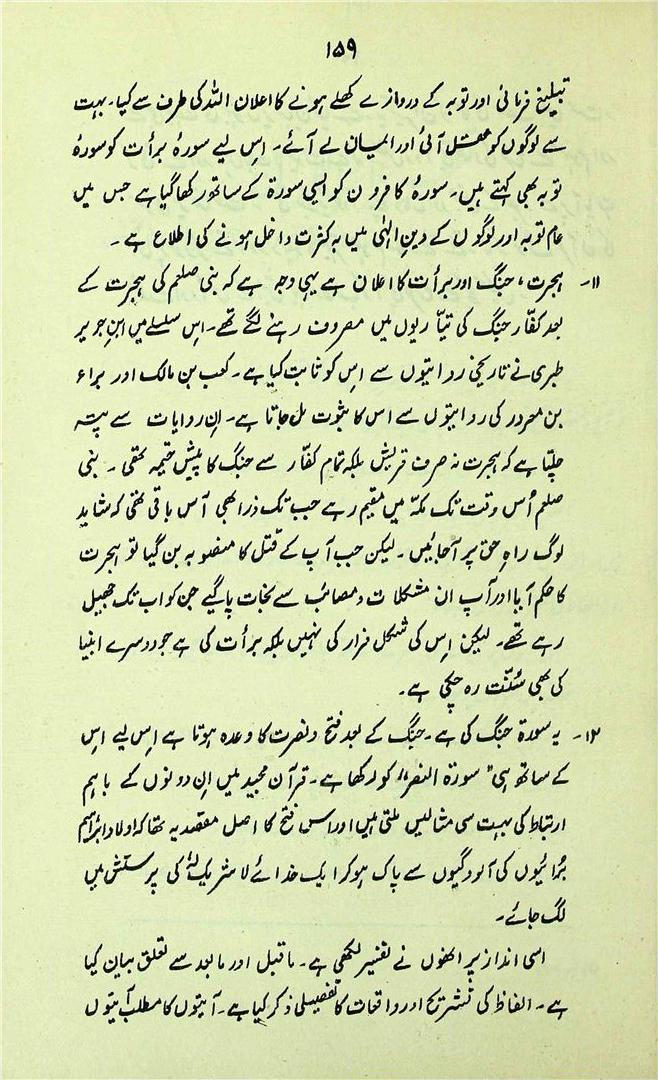 ۱۵۹
تبلیغ فرمائی اور توبہ کے دروازے کھلے ہونے کا اعلان اللہ کی طرف سے کیا۔ بہت
سے لوگوں کو عقل آئی اور ایمان لے آئے۔ اس لیے سورۂ برأت کو سورۂ
توبہ بھی کہتے ہیں۔ سورۂ کافرون کو ایسی سورۃ کے ساتھ رکھا گیا ہے جس میں
عام توبہ اور لوگوں کے دینِ الٰہی میں بہ کثرت داخل ہونے کی اطلاع ہے۔
۱۱۔ ہجرت، جنگ اور برأت کا اعلان ہے یہی وجہ ہے کہ نبی صلعم کی ہجرت کے
بعد کفّار جنگ کی تیّاریوں میں مصروف رہنے لگے تھے۔ اس سلسلے میں ابنِ جریر
طبری نے تاریخی روایتوں سے اس کو ثابت کیا ہے۔ کعب بن مالک اور براء
بن معرور کی روایتوں سے اس کا ثبوت مل جاتا ہے۔ اِن روایات سے پتہ
چلتا ہے کہ ہجرت نہ صرف قریش بلکہ تمام کفّار سے جنگ کا پیش خیمہ تھی۔ نبی
صلعم اُس وقت تک مکّہ میں مقیم رہے جب تک ذرا بھی آس باقی تھی کہ شاید
لوگ راہِ حق پر آجائیں۔ لیکن جب آپ کے قتل کا منصوبہ بن گیا تو ہجرت
کا حکم آیا اور آپ ان مشکلات و مصائب سے نجات پاگیے جن کو اب تک جھیل
رہے تھے۔ لیکن اِس کی شکل فرار کی نہیں بلکہ برأت کی ہے جو دوسرے انبیا
کی بھی سُنّت رہ چکی ہے۔
۱۲۔ یہ سورۃ جنگ کی ہے۔ جنگ کے بعد فتح و نصرت کا وعدہ ہوتا ہے اِس لیے اِس
کے ساتھ ہی "سورۃ النصر" کو رکھا ہے۔ قرآن مجید میں اِن دونوں کے باہم
ارتباط کی بہت سی مثالیں ملتی ہیں اور اس فتح کا اصل مقصد یہ تھا کہ اولادِ ابراہیم
بُرائیوں کی آلودگیوں سے پاک ہو کر ایک خدائے لاشریک لہٗ کی پرستش میں
لگ جائے۔
اسی انداز پر انھوں نے تفسیر لکھی ہے۔ ماقبل اور مابعد سے تعلق بیان کیا
ہے۔ الفاظ کی تشریح اور واقعات کا تفصیلی ذکر کیا ہے۔ آیتوں کا مطلب آیتوں